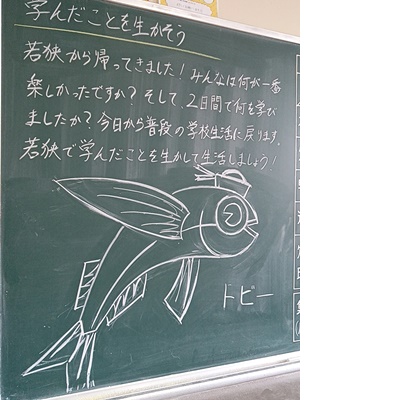 学んだことを生かそう
若狭から帰ってきました！みんなは何が一番
楽しかったですか？そして、2日間で何を学び
ましたか？今日から普段の学校生活に戻ります。
若狭で学んだことを生かして生活しましょう！
トビー